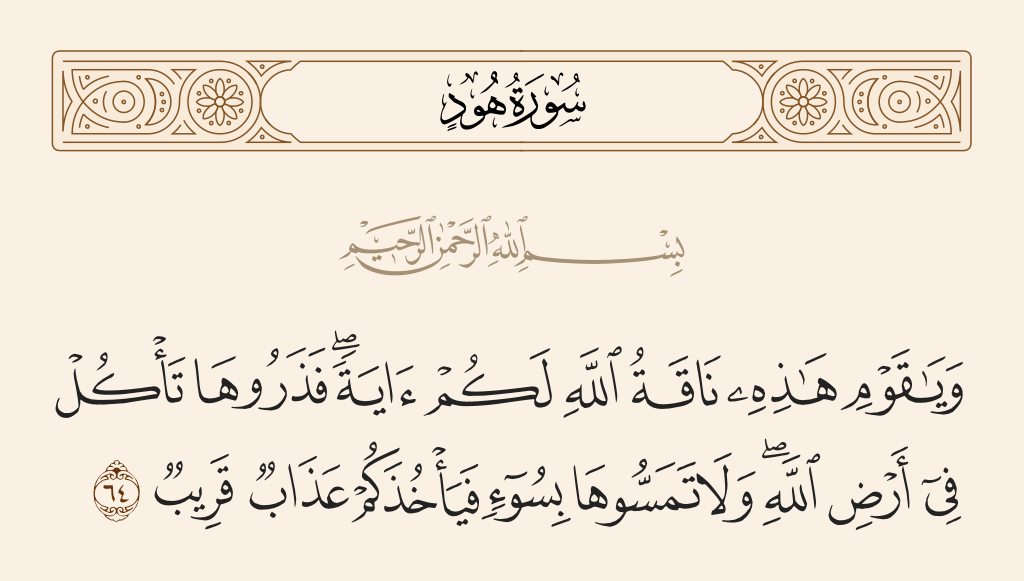 سُورَةُ هُودٍ
بِسْمِ ٱللَّهِ ٱلرَّحْمَٰنِ ٱلرَّحِيمِ
وَيَـٰقَوْمِ هَـٰذِهِۦ نَاقَةُ ٱللَّهِ لَكُمْ ءَايَةًۖ فَذَرُوهَا تَأْكُلْ
فِىٓ أَرْضِ ٱللَّهِۖ وَلَا تَمَسُّوهَا بِسُوٓءٍ فَيَأْخُذَكُمْ عَذَابٌ قَرِيبٌ ٦٤